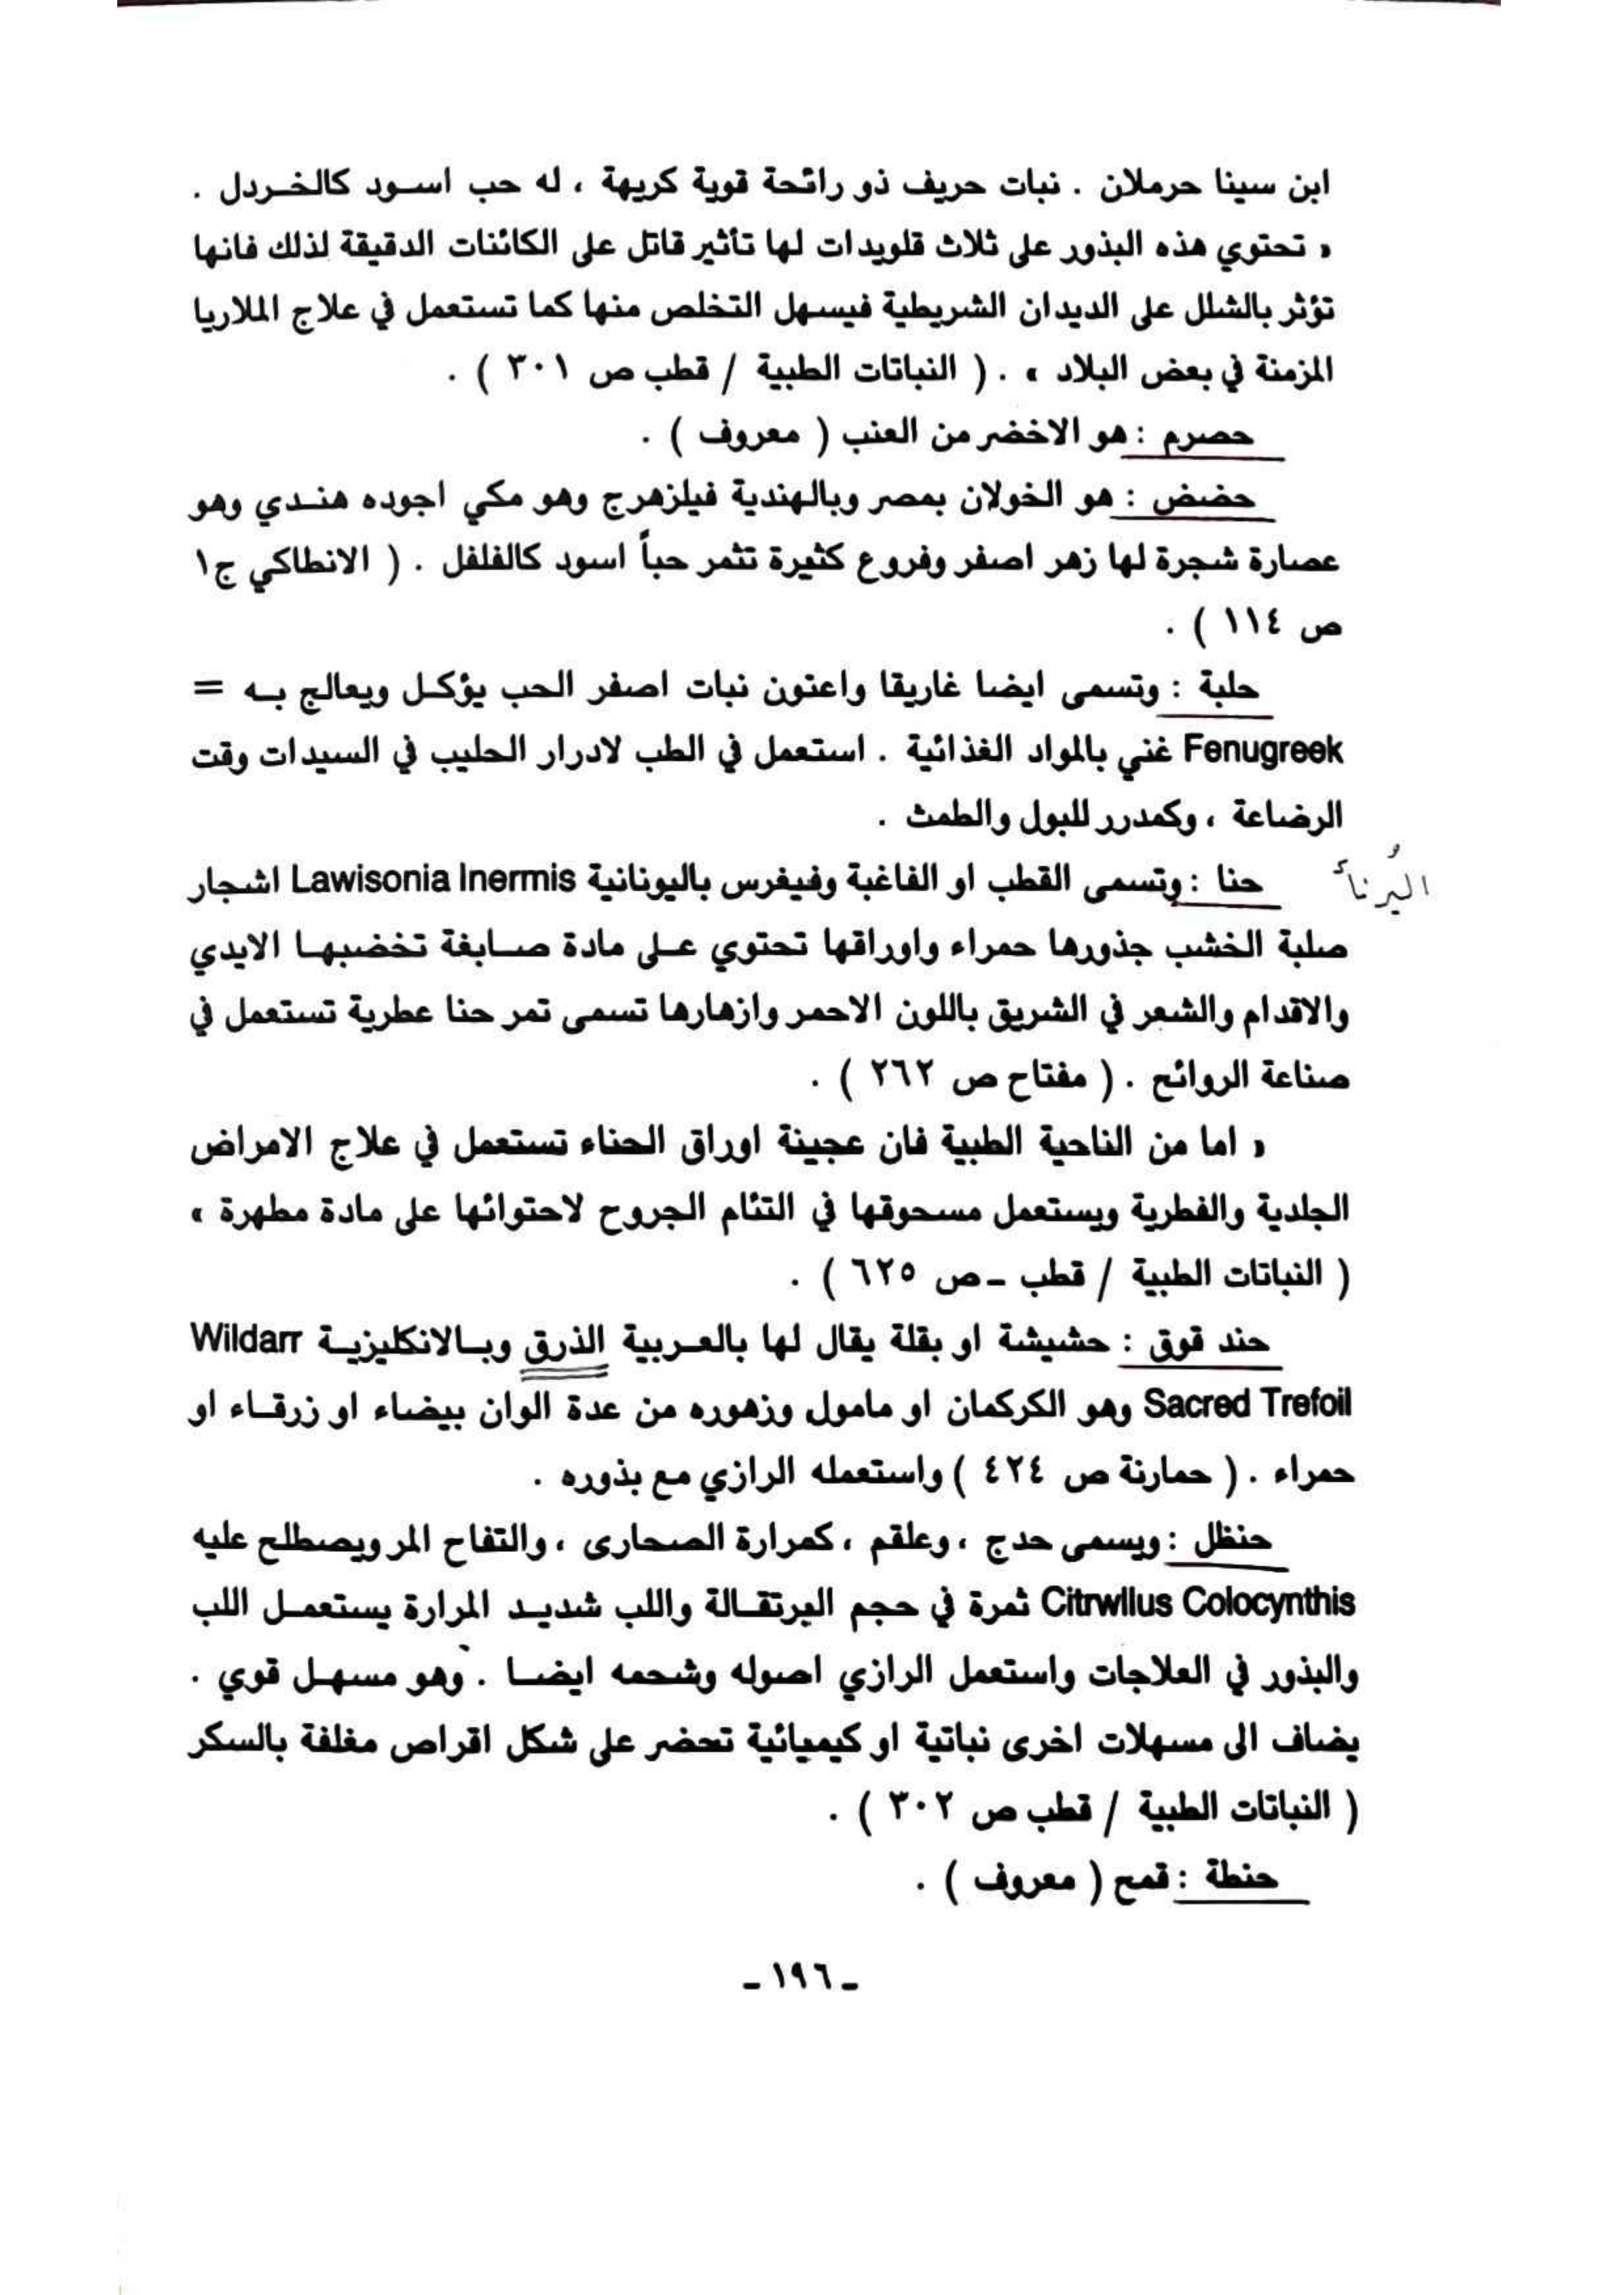 ابن سينا حرملان . نبات حريف ذو رائحة قوية كريهة ، له حب اسود كالخردل .
« تحتوي هذه البذور على ثلاث قلويدات لها تأثير قاتل على الكائنات الدقيقة لذلك فانها
تؤثر بالشلل على الديدان الشريطية فيسهل التخلص منها كما تستعمل في علاج الملاريا
المزمنة في بعض البلاد » . ( النباتات الطبية / قطب ص ٣٠١ ) .
حصرم : هو الاخضر من العنب ( معروف ) .
حضض : هو الخولان بمصر وبالهندية فيلزهرج وهو مكي اجوده هندي وهو
عصارة شجرة لها زهر اصفر وفروع كثيرة تثمر حباً اسود كالفلفل . ( الانطاكي ج١
ص ١١٤ ) .
حلبة : وتسمى ايضا غاريقا واعتون نبات اصفر الحب يؤكل ويعالج به =
Fenugreek غني بالمواد الغذائية . استعمل في الطب لادرار الحليب في السيدات وقت
الرضاعة ، وكمدرر للبول والطمث .
اليُرنأُ
حنا : وتسمى القطب او الفاغبة وفيغرس باليونانية Lawisonia Inermis اشجار
صلبة الخشب جذورها حمراء واوراقها تحتوي على مادة صابغة تخضبها الايدي
والاقدام والشعر في الشريق باللون الاحمر وازهارها تسمى تمر حنا عطرية تستعمل في
صناعة الروائح . ( مفتاح ص ٢٦٢ ) .
« اما من الناحية الطبية فان عجينة اوراق الحناء تستعمل في علاج الامراض
الجلدية والفطرية ويستعمل مسحوقها في التئام الجروح لاحتوائها على مادة مطهرة »
( النباتات الطبية / قطب - ص ٦٢٥ ) .
حند قوق : حشيشة او بقلة يقال لها بالعربية الذرق وبالانكليزية Wildarr
Sacred Trefoil وهو الكركمان او مامول وزهوره من عدة الوان بيضاء او زرقاء او
حمراء . ( حمارنة ص ٤٢٤ ) واستعمله الرازي مع بذوره .
حنظل : ويسمى حدج ، وعلقم ، كمرارة الصحارى ، والتفاح المر ويصطلح عليه
Citrwllus Colocynthis ثمرة في حجم البرتقالة واللب شديد المرارة يستعمل اللب
والبذور في العلاجات واستعمل الرازي اصوله وشحمه ايضا . وهو مسهل قوي .
يضاف الى مسهلات اخرى نباتية او كيميائية تحضر على شكل اقراص مغلفة بالسكر
( النباتات الطبية / قطب ص ٣٠٢ ) .
حنطة : قمح ( معروف ) .
- ١٩٦ -